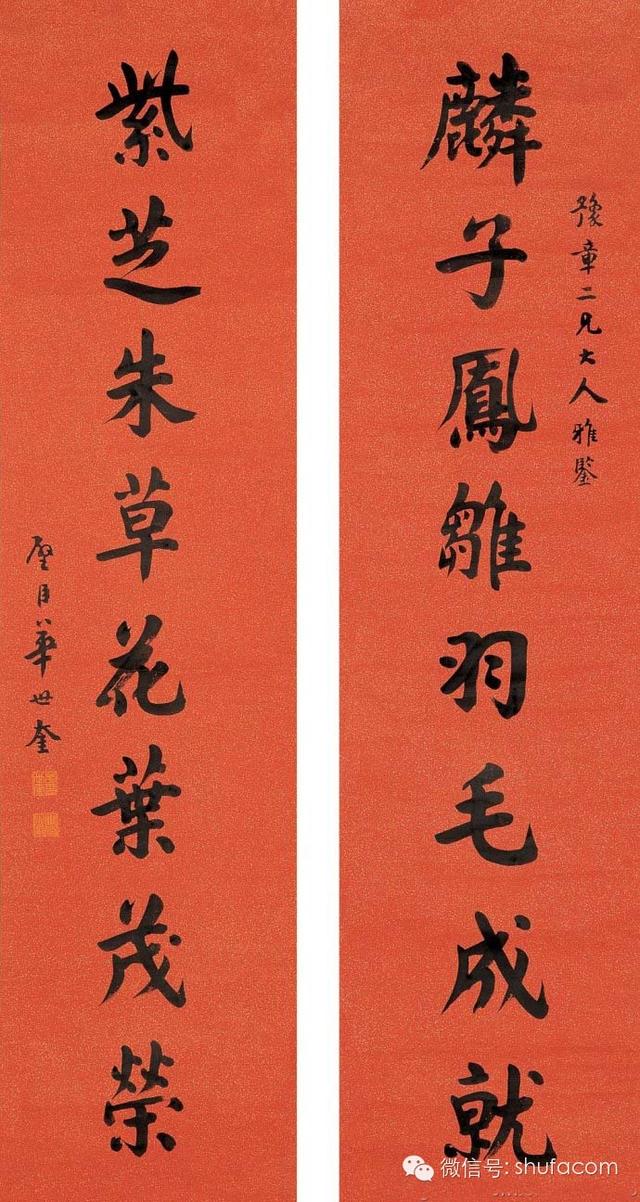 豫章二兄大人雅鑒
麟子鳳雛羽毛成就
紫芝朱草花葉茂榮
璧臣華世奎
微信号: shufacom